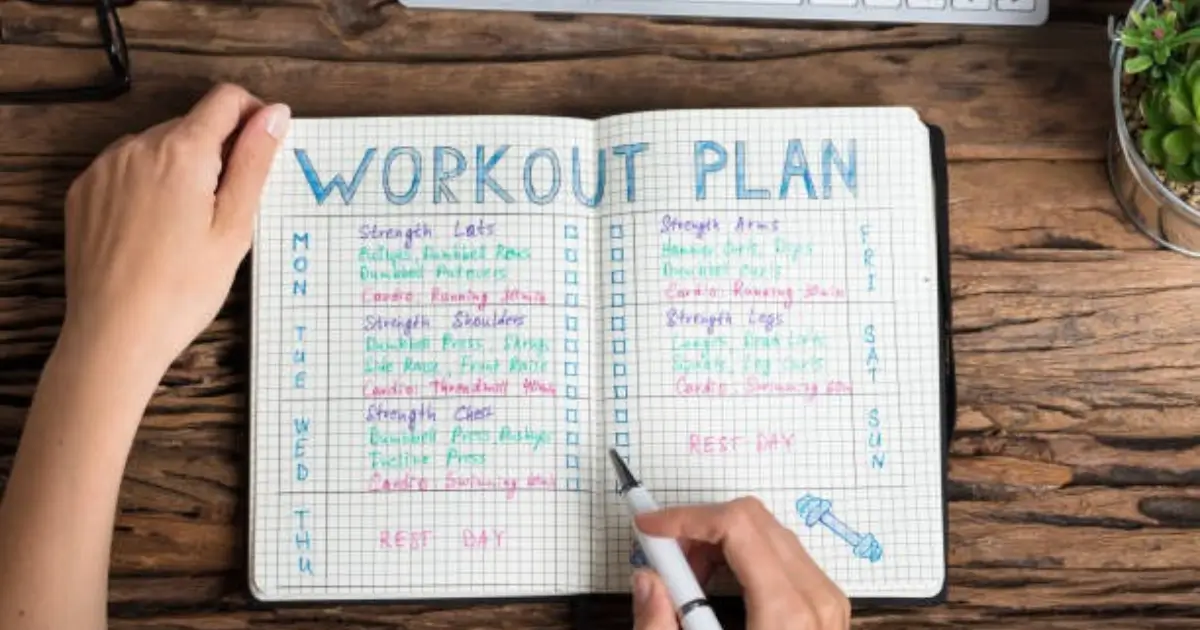 WORKOUT PLAN
MON
Strength Lats
Pullups, Dumbbell Rows
Dumbbell Pullovers
Cardio: Running 30min
TUE
Strength Shoulders
Dumbbell Press, Shrug
Side Raise, Front Raise
Cardio: Threadmill 40min
WED
Strength Chest
Dumbbell Press Pushups
Incline Press
Cardio Swimming
THU
REST DAY
FRI
Strength Arms
Hammer Curls, Dips
Dumbbell Curls
Cardio: Running 30min
SAT
Strength Legs
Lunges, Dead Lifts
Squats, Leg Curls
Cardio: Swimming
SUN
REST DAY